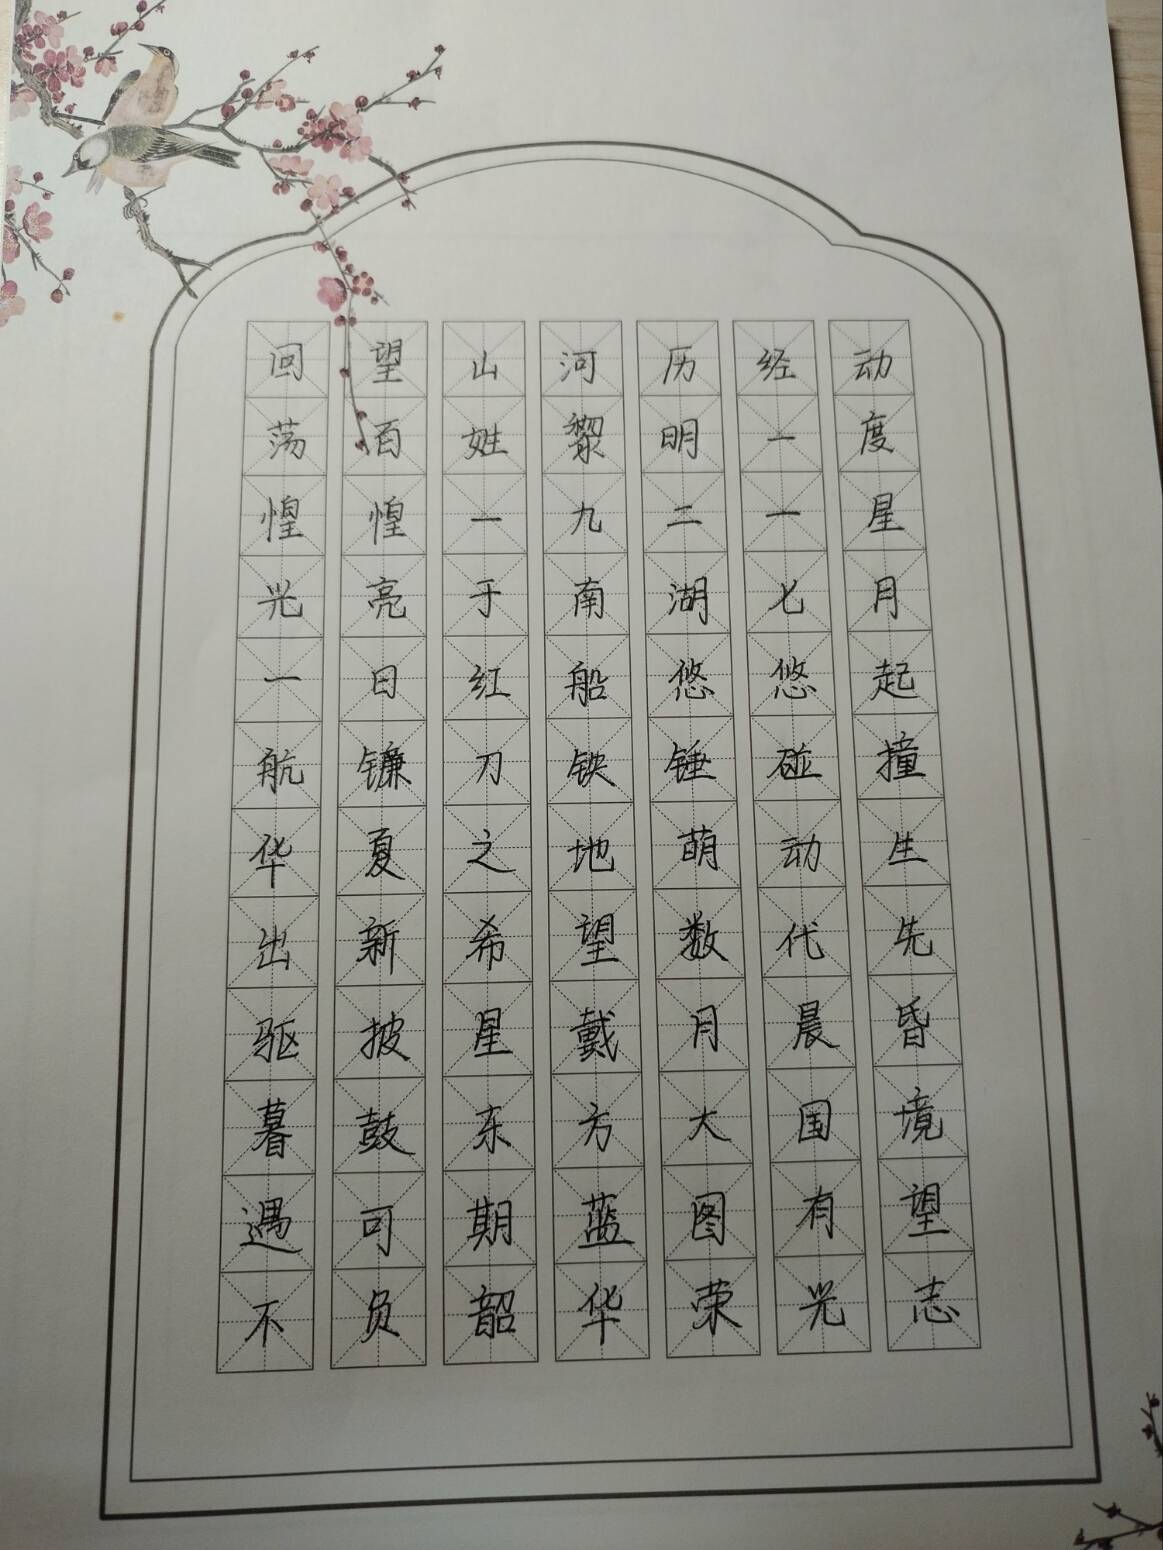 回望山河历经动
荡百姓黎明一度
惶惶一九二一星
光亮于南湖七月
一日红船悠悠起
航镰刀铁锤碰撞
华夏之地萌动生
出新希望数代先
驱披星戴月晨昏
暮鼓东方大国境
遇可期蓝图有望
不负韶华荣光志